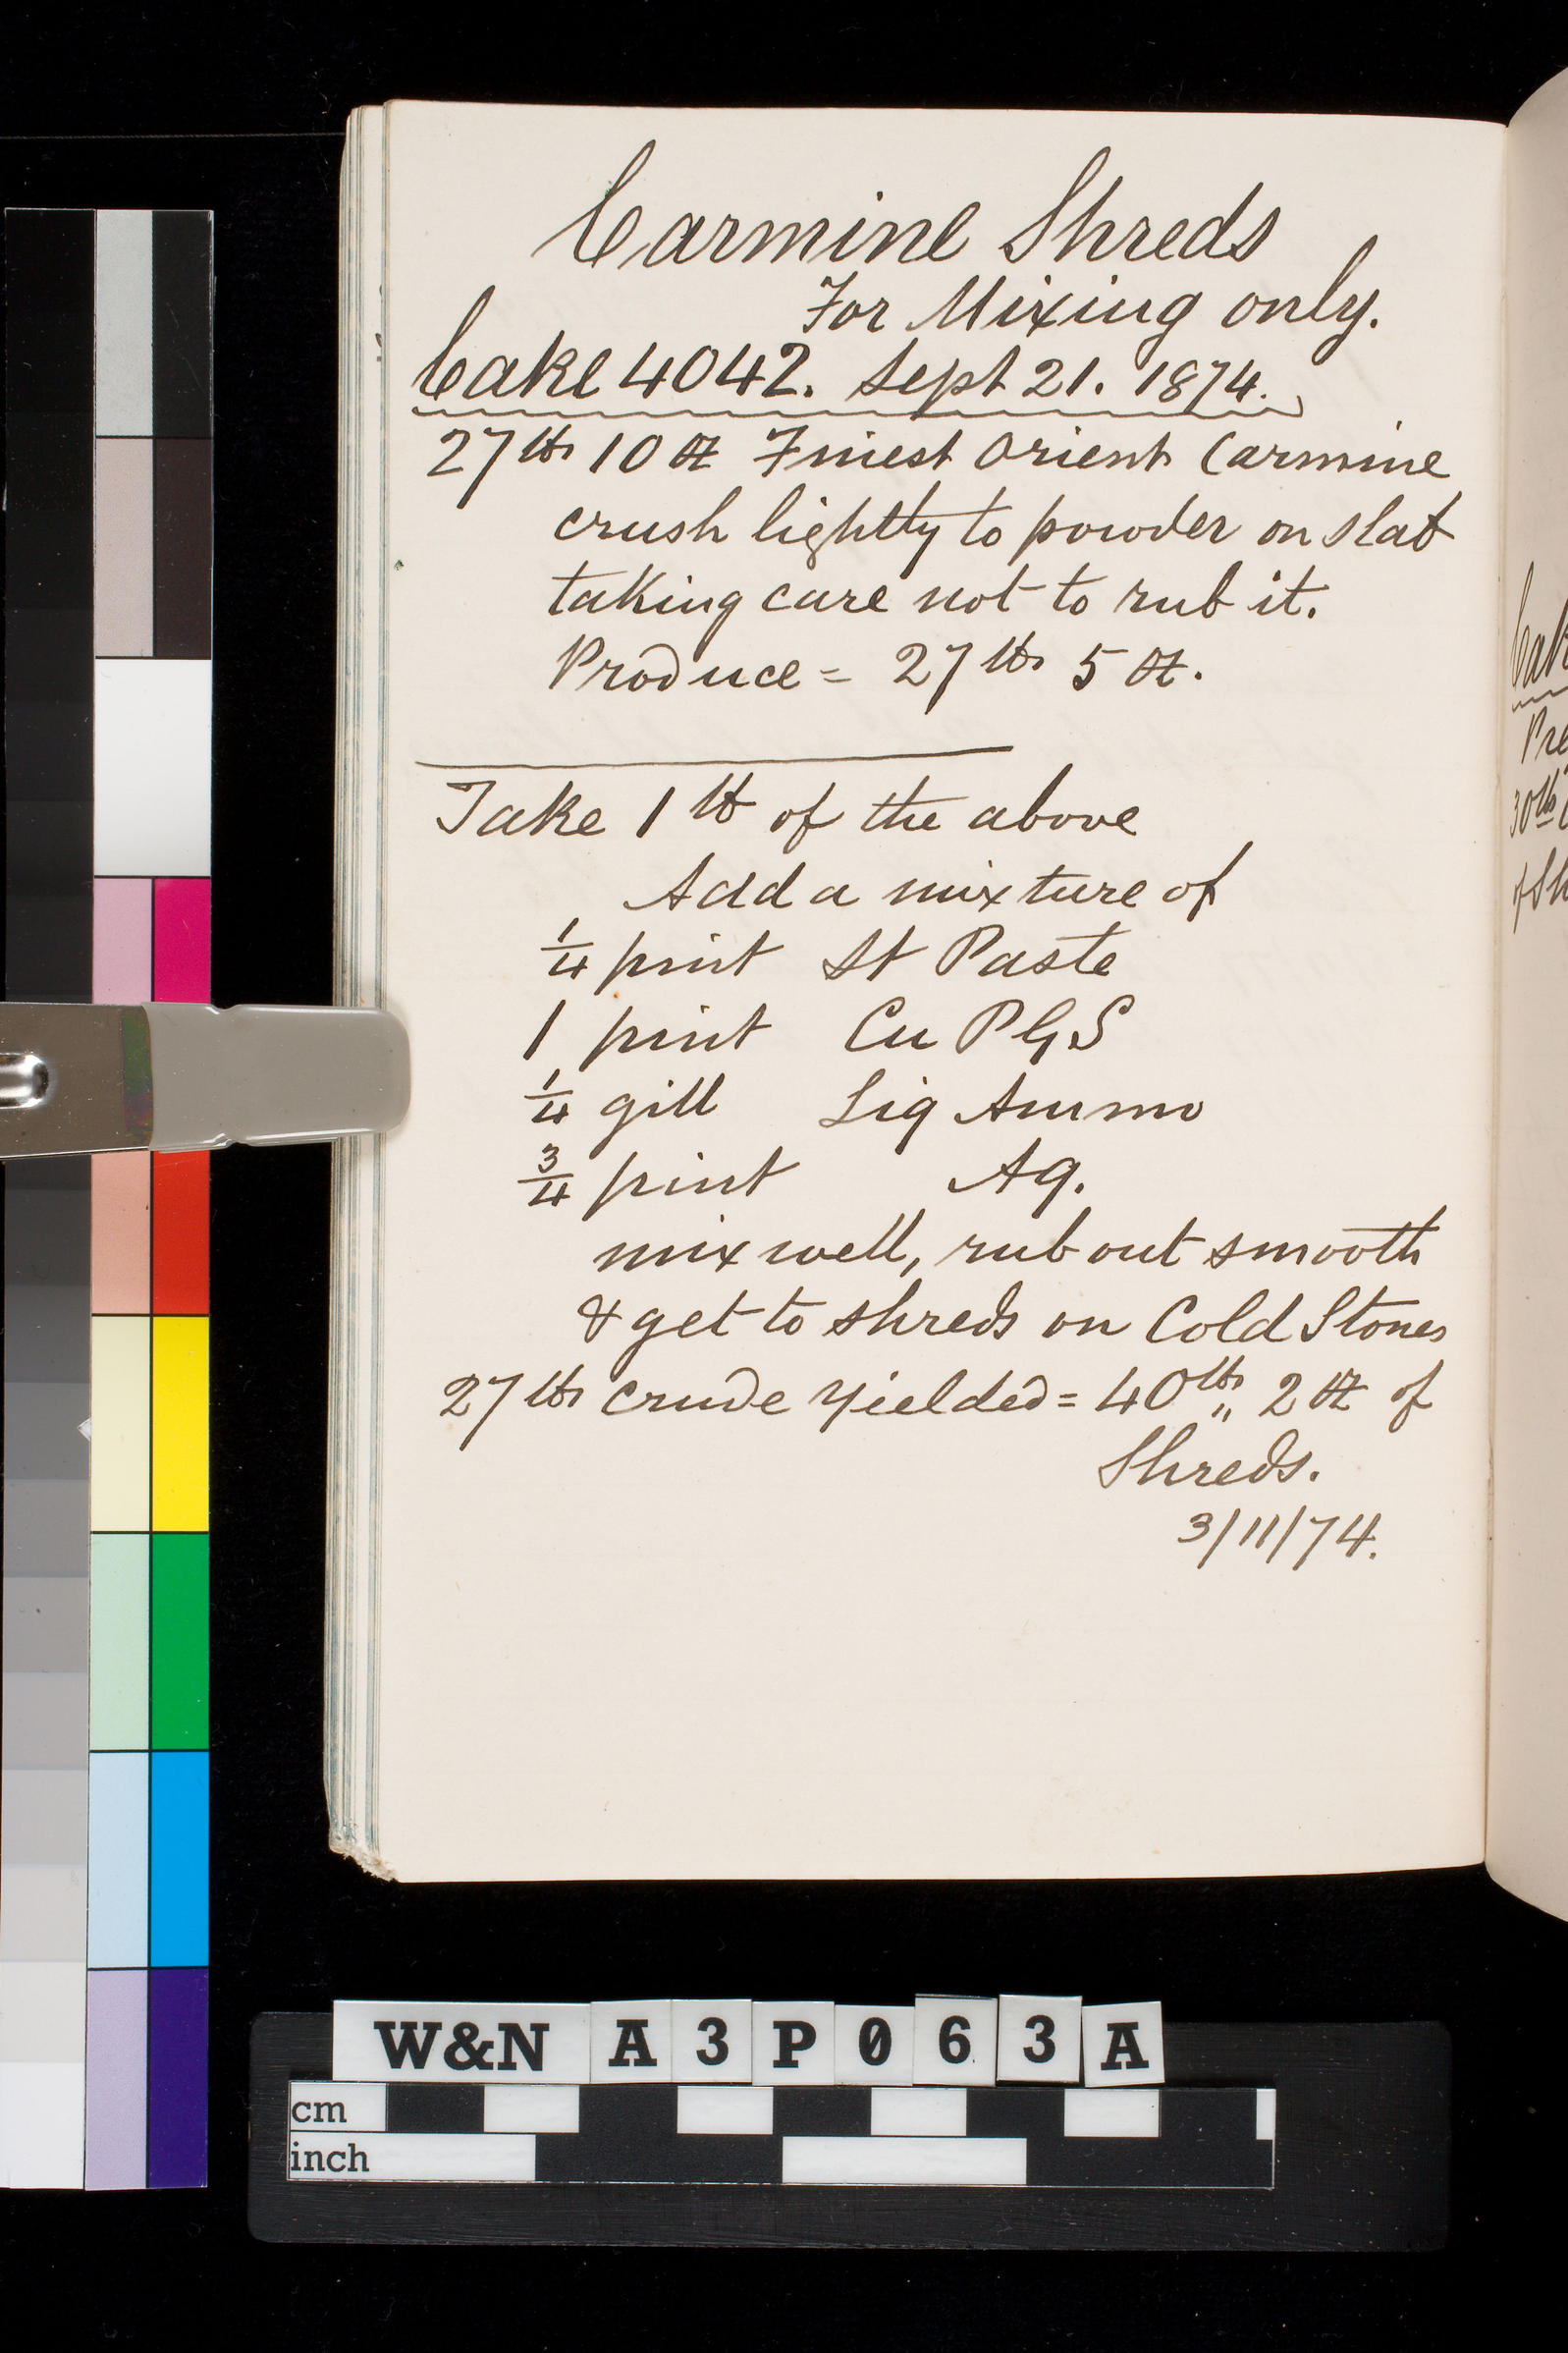 Carmine Shreds
For Mixing only.
Cake 4042. Sept 21. 1874.
27 lbs 10 oz Finest Orient Carmine
crush lightly to powder on slab
taking care not to rub it.
Produce = 27 lbs 5 oz.
Take 1 lb of the above
Add a mixture of
1/4 pint St Paste
1 pint Cu P G S
1/4 gill Liq Ammo
3/4 pint Aq.
mix well, rub out smooth
& get to shreds on Cold Stones
27 lbs crude yielded = 40 lbs,, 2 oz of
Shreds.
3/11/74.
W&N A3P063A
cm
inch